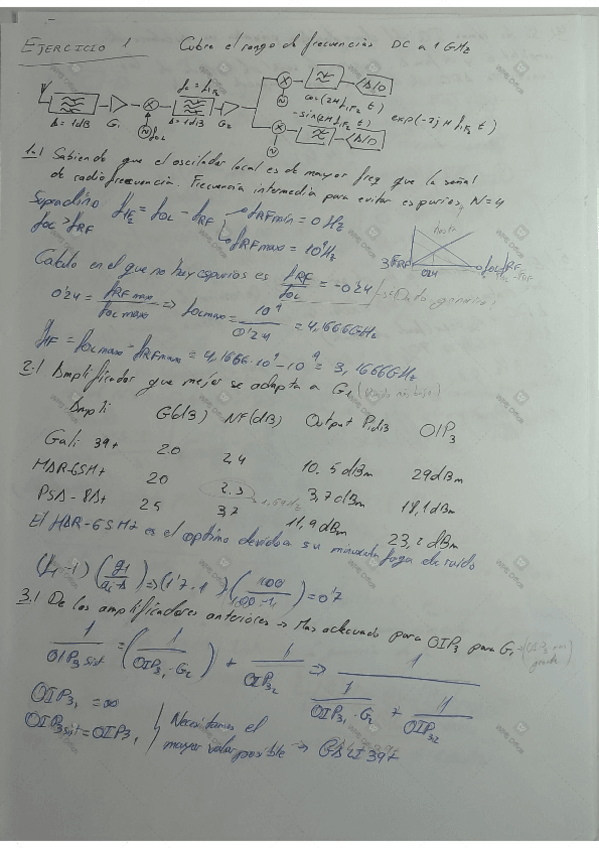 EJERCICIO 1 Cubra el rango de frecuencias DC a 1 GHz
f₀ = f_IF2
Δ = 1dB G₁ f_OL Δ = 1dB G₂
A/D
cos(2π f_IF2 t)
-sin(2π f_IF2 t) exp(-2jπ f_IF2 t)
A/D
1.1 Sabiendo que el oscilador local es de mayor freq que la señal
de radiofrecuencia. Frecuencia intermedia para evitar espurios, N=4
Supradino f_IF2 = f_OL - f_RF → f_RFmin = 0 Hz
f_OL > f_RF f_RFmax = 10⁹ Hz
0'24
Calculo en el que no hay espurios es f_RF / f_OL = -0'24
0'24 = f_RF max / f_OL max => f_OL max = 10⁹ / 0'24 = 4,1666 GHz
f_IF = f_OL max - f_RF max = 4,1666·10⁹ - 10⁹ = 3,1666 GHz
2.1 Amplificador que mejor se adapta a G₁
Ampli G(dB) NF(dB) Output P1dB OIP₃
Gali 39+ 20 2,4 10.5 dBm 29 dBm
MAR-6SM+ 20 2.3 3,7 dBm 18,1 dBm
PSA-8A+ 25 3,7 11,9 dBm 23,2 dBm
El MAR-6SM+ es el optimo devido a su minuscula figa de ruido
3.1 De los amplificadores anteriores → Mas adecuado para OIP₃ para G₁
1 / OIP₃ sist = (1 / OIP₃₁·G₂) + 1 / OIP₃₂ => 1 / (1 / OIP₃₁·G₂ + 1 / OIP₃₂)
OIP₃₁ = ∞
OIP₃sist = OIP₃₁ Necesitamos el
mayor valor posible → GALI 39+